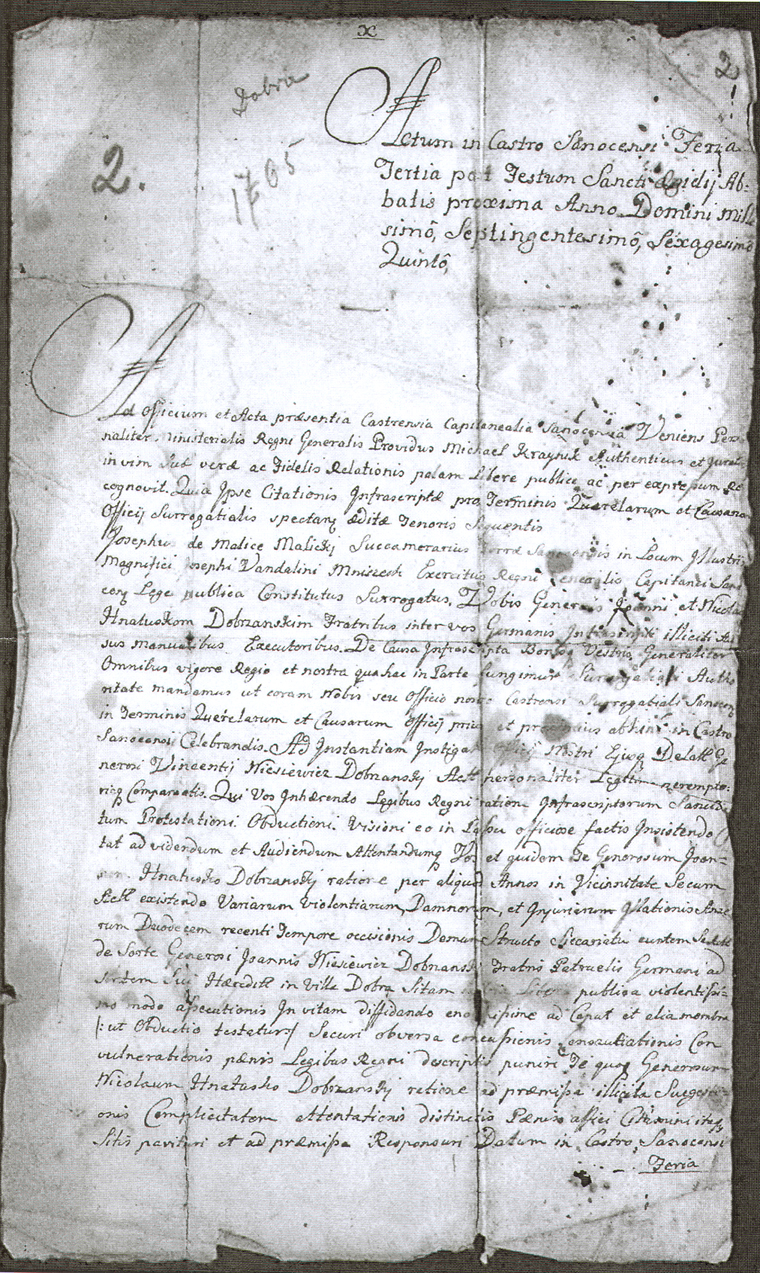 x
2
Dobra
2.
1765
Actum in Castro Sanocensi Feria
Tertia post Festum Sancti Ægidij Ab-
batis proxima Anno Domini Mille
simô, Septingentesimô, Sexagesimô
Quintô,
Ad Officium et Acta præsentia Castrensia Capitanealia Sanocensia Veniens Perso
naliter Ministerialis Regni Generalis Providus Michael Kraynik Authenticus et Jurat
in vim suæ veræ ac Fidelis Relationis palam Libere publice ac per expressum Re
cognovit. Quia Ipse Citationis Infrascriptæ pro Terminis Querelarum et Causarum
Officij Surrogatialis spectan æditæ Tenoris Sequentis
Josephus de Malice Malicki Succamerarius Terræ Sanocensis in Locum Illustris
Magnifici Josephi Vandalini Mniszech Exercitus Regni Generalis Capitanei San
cen Lege publica Constitutus Surrogatus, Vobis Generosis Joanni et Nicolao
Hnatuskom Dobrzanskim Fratribus inter vos Germanis Infrascripti illiciti
sus manualibus Executoribus. De Causa Infrascripta Bonisq Vestris Generaliter
Omnibus vigore Regio et nostra qua hac in Parte fungimur Surrogatiali Autho
ritate mandamus ut coram Nobis seu Officio nostro Castrensi Surrogatiali Sanocen
in Terminis Querelarum et Causarum Officij prius et abhinc in Castro
Sanocensi Celebrandis. Ad Instantiam Instigatoris Officij Nostri Ejusq Delatt Ge
nerosi Vincentij Niesiewicz Dobrzanskj Act personaliter Legittime peremptor
rieq Compareatis. Qui Vos Inhærendo Legibus Regni ratione Infrascriptorum Sancitis
tum Protestationi Obductioni Visioni eo in Passu officiose factis Insistendo Ci
tat ad videndum et Audiendum Attentandumq Vos et quidem Te Generosum Joan-
nem Hnatusko Dobrzanskj ratione per aliquot Annos in Vicinitate Secum
Act existendo Variarum Violentiarum, Damnorum, et Injuriarum Illationis
rum Duodecem recenti Tempore occisionis Demum Structo Siccariatu euntem
de Sorte Generosi Joannis Niesiewicz Dobrzanskj Fratris Patruelis Germani ad
Sortem Sui Hæredit in Villa Dobra Sitam via Libera publica violentissi-
mo modo assecutionis In vitam diffidando ad Caput et alia membra
/: ut Obductio testatur :/ Securi obversa concussionis Con
vulnerationis pænis Legibus Regni descriptis puniri Te quoq Generosum
Nicolaum Hnatusko Dobrzanskj ratione ad præmissa illicita Suggesti
onis Complicitatem attentationis distinctis Pænis affici
Sitis parituri et ad præmissa Responsuri Datum in Castro Sanocensi
Feria